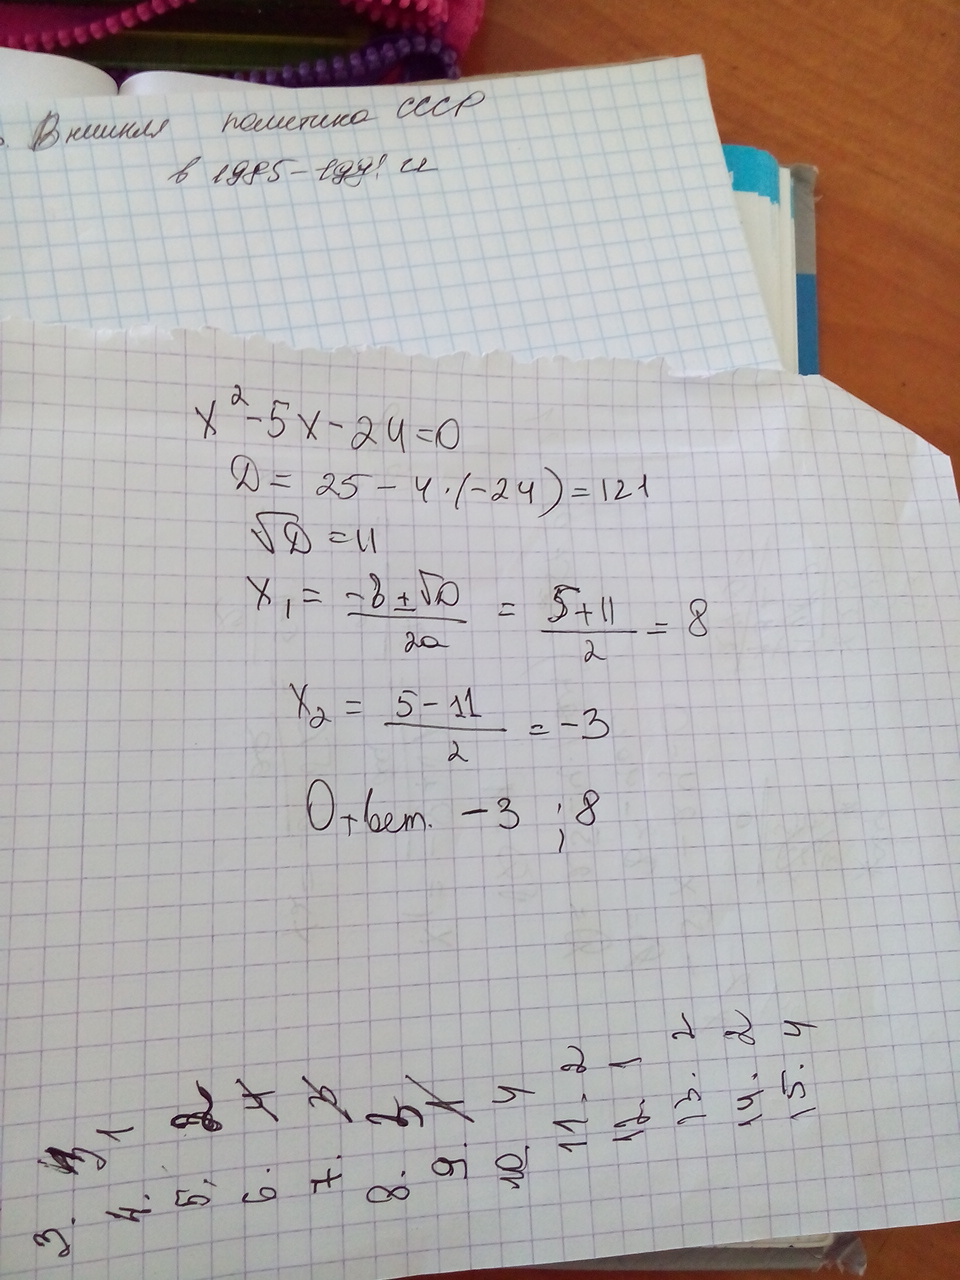 Внешняя политика СССР
в 1985-1991 гг
x² - 5x - 24 = 0
D = 25 - 4·(-24) = 121
√D = 11
x₁ = (-b ± √D)/2a = (5+11)/2 = 8
x₂ = (5-11)/2 = -3
Ответ. -3 ; 8
3.
4. 1
5. 2
6. 4
7. 3
8. 3
9. 1
10. 4
11. 2
12. 1
13. 2
14. 2
15. 4